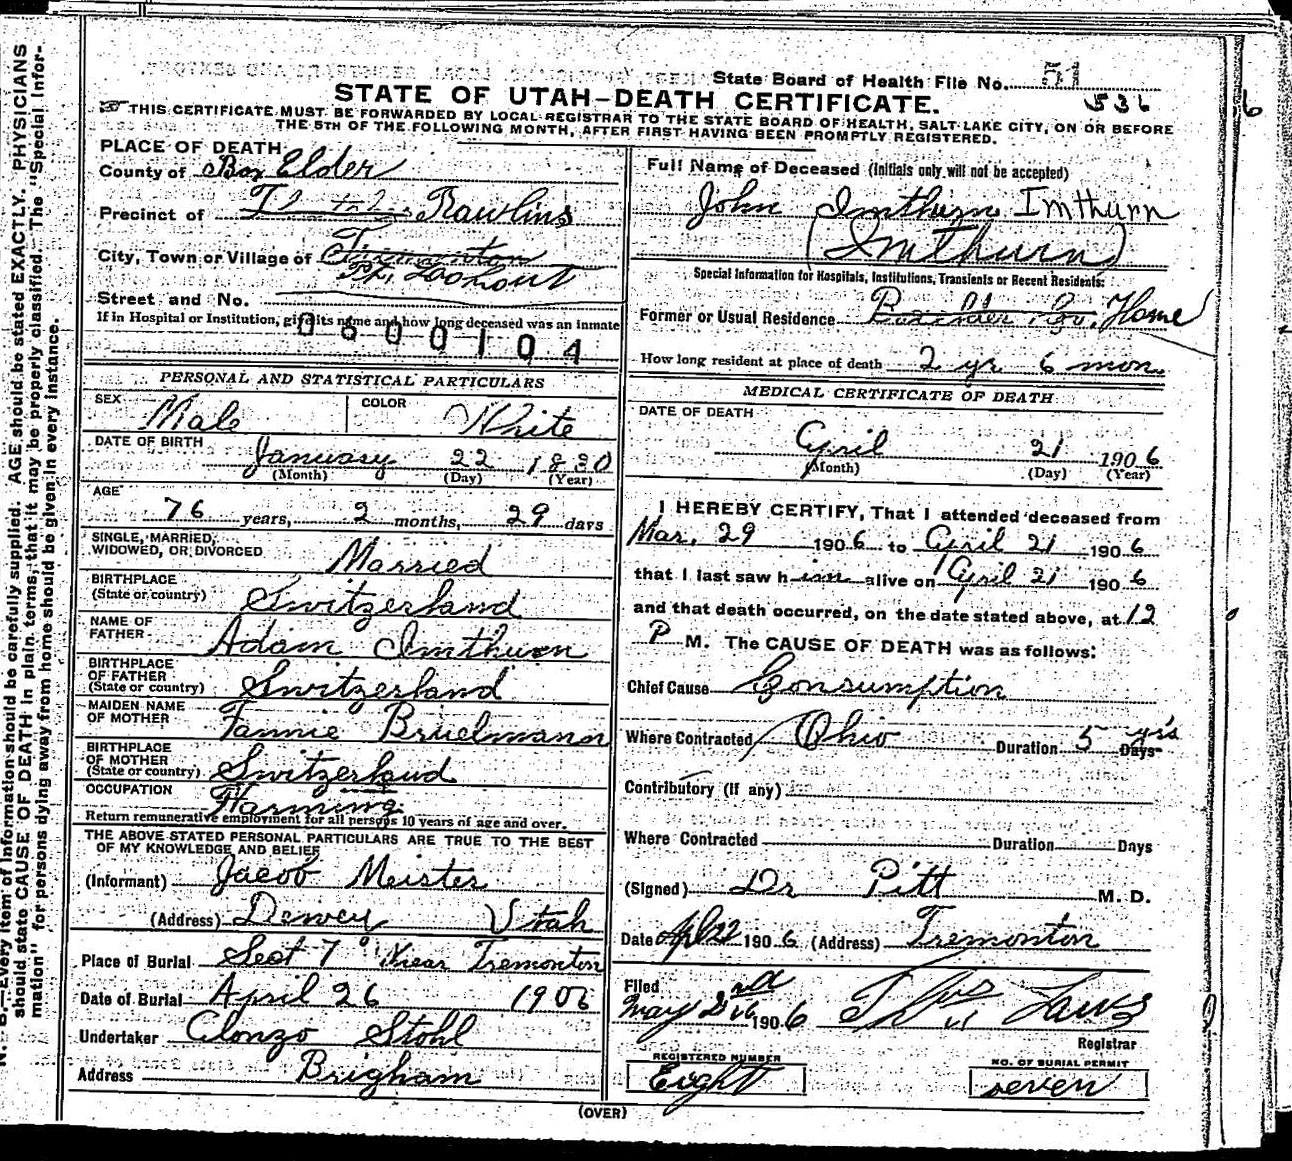 State Board of Health File No. 51
536
STATE OF UTAH—DEATH CERTIFICATE.
THIS CERTIFICATE MUST BE FORWARDED BY LOCAL REGISTRAR TO THE STATE BOARD OF HEALTH, SALT LAKE CITY, ON OR BEFORE
THE 5TH OF THE FOLLOWING MONTH, AFTER FIRST HAVING BEEN PROMPTLY REGISTERED.
PLACE OF DEATH
County of Box Elder
Precinct of Rawlins
City, Town or Village of Tremonton
Pt. Lookout
Street and No.
If in Hospital or Institution, give its name and how long deceased was an inmate
0600104
PERSONAL AND STATISTICAL PARTICULARS
SEX Male COLOR White
DATE OF BIRTH January 22 1830
(Month) (Day) (Year)
AGE 76 years, 2 months, 29 days
SINGLE, MARRIED,
WIDOWED, OR DIVORCED Married
BIRTHPLACE
(State or country) Switzerland
NAME OF
FATHER Adam Imthurn
BIRTHPLACE
OF FATHER
(State or country) Switzerland
MAIDEN NAME
OF MOTHER Fannie Bruelmann
BIRTHPLACE
OF MOTHER
(State or country) Switzerland
OCCUPATION Farming
Return remunerative employment for all persons 10 years of age and over.
THE ABOVE STATED PERSONAL PARTICULARS ARE TRUE TO THE BEST
OF MY KNOWLEDGE AND BELIEF
(Informant) Jacob Meister
(Address) Dewey Utah
Place of Burial Sect 7 Near Tremonton
Date of Burial April 26 1906
Undertaker Alonzo Stohl
Address Brigham
Full Name of Deceased (Initials only will not be accepted)
John Imthurn Imthurn
(Imthurn)
Special Information for Hospitals, Institutions, Transients or Recent Residents:
Former or Usual Residence Home
How long resident at place of death 2 yr 6 mon.
MEDICAL CERTIFICATE OF DEATH
DATE OF DEATH
April 21 1906
(Month) (Day) (Year)
I HEREBY CERTIFY, That I attended deceased from
Mar. 29 1906 to April 21 1906
that I last saw him alive on April 21 1906
and that death occurred, on the date stated above, at 12
P M. The CAUSE OF DEATH was as follows:
Chief Cause Consumption
Where Contracted Ohio Duration 5 yr's Days
Contributory (If any)
Where Contracted Duration Days
(Signed) Dr Pitt M. D.
Date Apl 22 1906 (Address) Tremonton
Filed
May 2nd 1906
Registrar
REGISTERED NUMBER
Eight
NO. OF BURIAL PERMIT
seven
(OVER)
N. B.—Every item of information should be carefully supplied. AGE should be stated EXACTLY. PHYSICIANS
should state CAUSE OF DEATH in plain terms, that it may be properly classified. The "Special Infor-
mation" for persons dying away from home should be given in every instance.